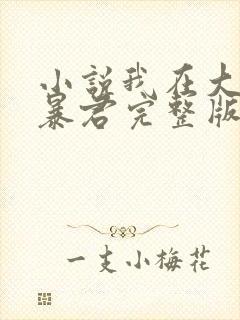 小説我在大
暴君完整版
一支小梅花